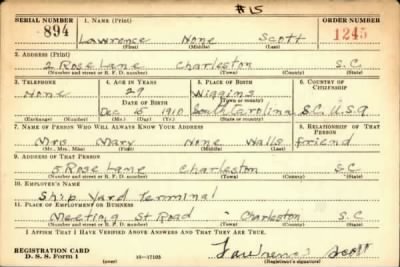 #15
SERIAL NUMBER 1. NAME (Print) ORDER NUMBER
894 Lawrence None Scott 1245
(First) (Middle) (Last)
2. ADDRESS (Print)
2 Rose Lane Charleston S.C.
(Number and street or R. F. D. number) (Town) (County) (State)
3. TELEPHONE 4. AGE IN YEARS 5. PLACE OF BIRTH 6. COUNTRY OF CITIZENSHIP
None 29 Wiggins
DATE OF BIRTH (Town or county)
Dec 15 1910 South Carolina S.C. U.S.A
(Exchange) (Number) (Mo.) (Day) (Yr.) (State or country)
7. NAME OF PERSON WHO WILL ALWAYS KNOW YOUR ADDRESS 8. RELATIONSHIP OF THAT PERSON
Mrs Mary None Walls friend
(Mr., Mrs., Miss) (First) (Middle) (Last)
9. ADDRESS OF THAT PERSON
5 Rose Lane Charleston S.C
(Number and street or R. F. D. number) (Town) (County) (State)
10. EMPLOYER'S NAME
Ship Yard Terminal
11. PLACE OF EMPLOYMENT OR BUSINESS
Meeting St Road Charleston S.C
(Number and street or R. F. D. number) (Town) (County) (State)
I AFFIRM THAT I HAVE VERIFIED ABOVE ANSWERS AND THAT THEY ARE TRUE.
REGISTRATION CARD
D. S. S. Form 1 (over) 16-17105 Lawrence Scott
(Registrant's signature)